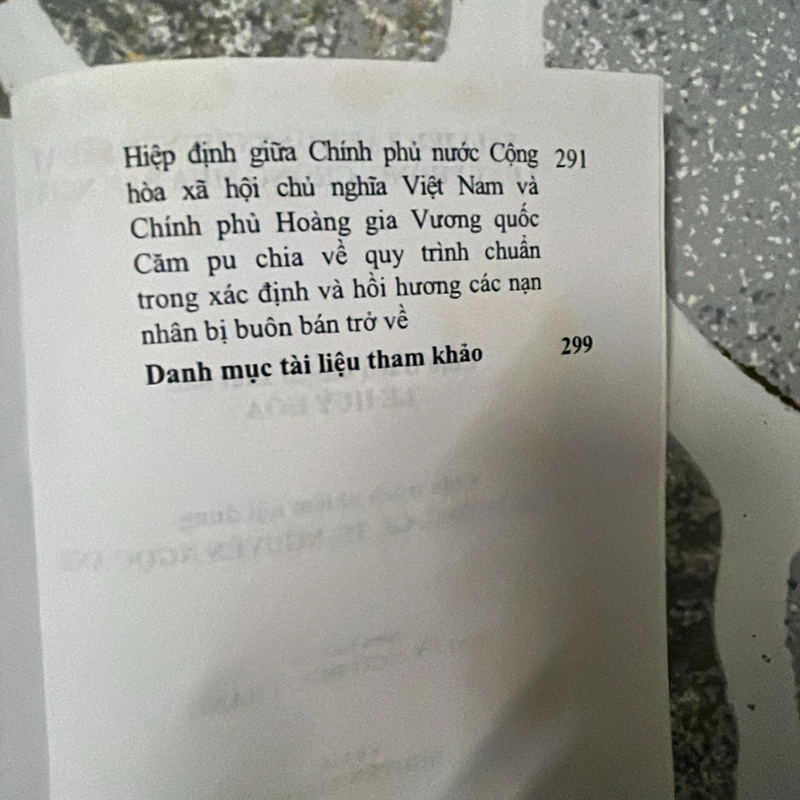 Hiệp định giữa Chính phủ nước Cộng 291
hòa xã hội chủ nghĩa Việt Nam và
Chính phủ Hoàng gia Vương quốc
Căm pu chia về quy trình chuẩn
trong xác định và hồi hương các nạn
nhân bị buôn bán trở về
Danh mục tài liệu tham khảo 299